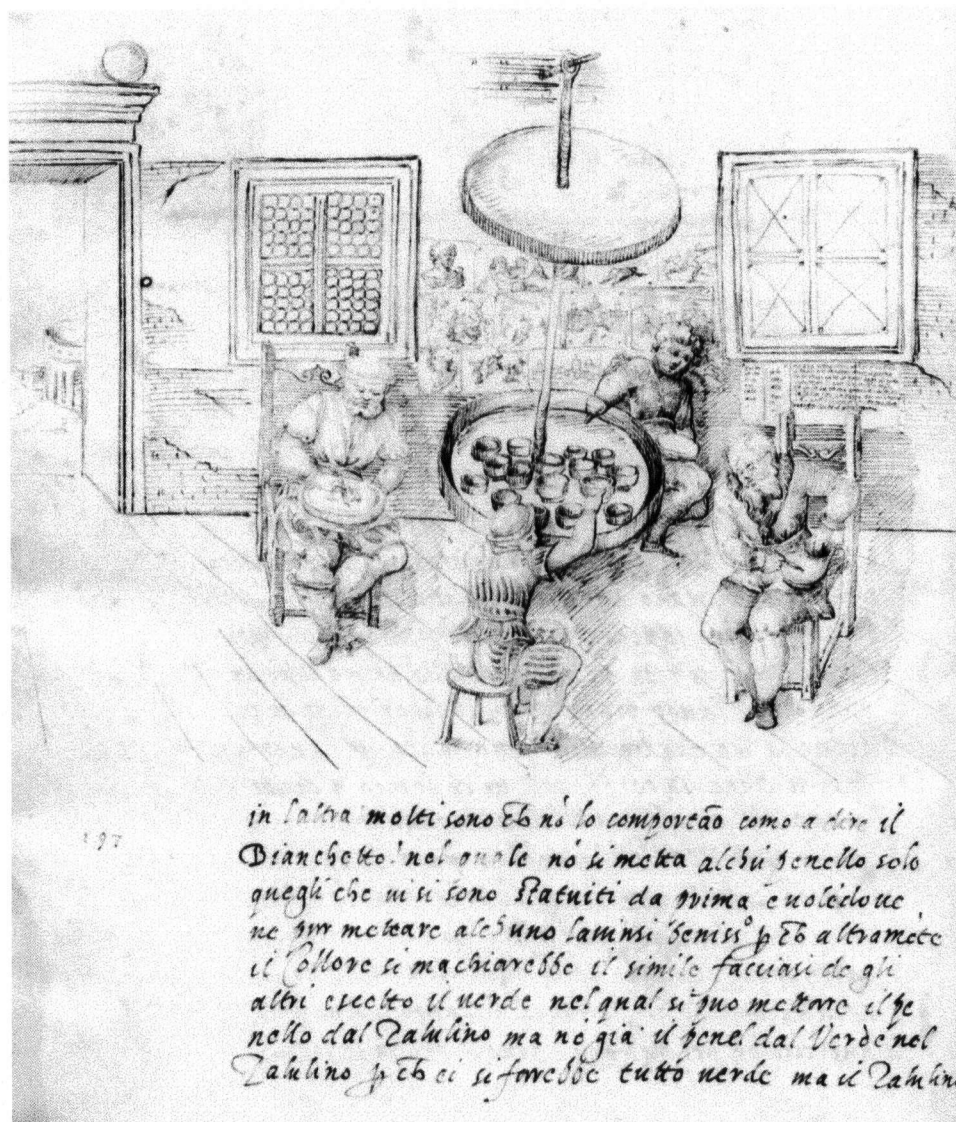 197
in laltra molti sono ch no lo comportão como a dire il
Bianchetto nel quale no si metta alchū penello solo
quegli che ui si sono statuiti da prima e uolēdoue
ne pur mettare alchuno lauinsi beniss° p ch altramēte
il Collore si machiarebbe il simile facciasi de gli
altri escetto il uerde nel qual si puo mettare il pe
nello dal Zalulino ma nō gia il penel dal Verde nel
Zalulino p ch ei si farebbe tutto uerde ma il Zalulino